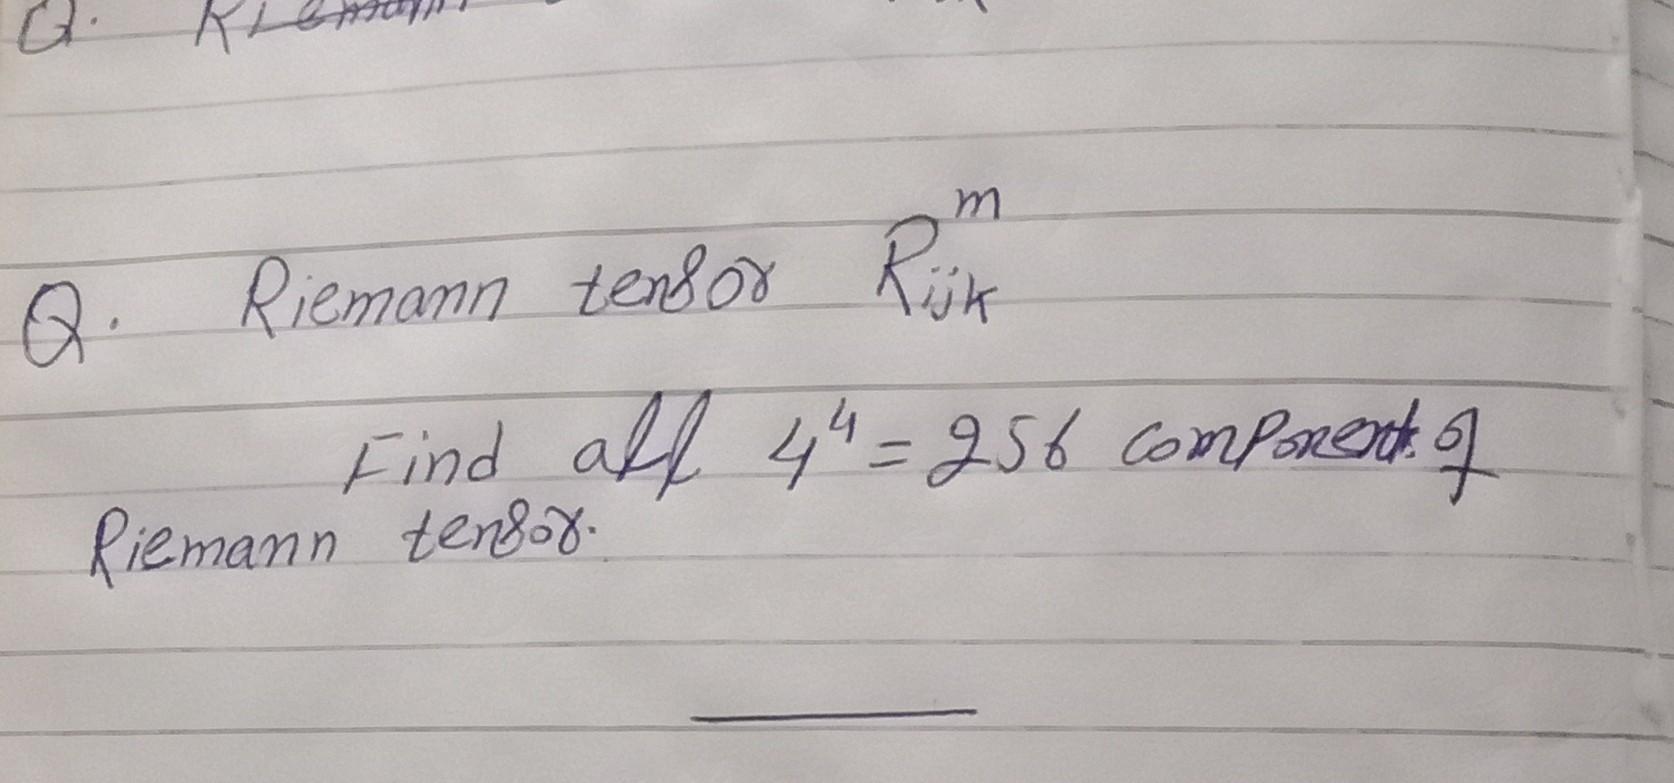 Q. Riemann
Q. Riemann tensor R^m_ijk
Find all 4^4 = 256 component of
Riemann tensor.